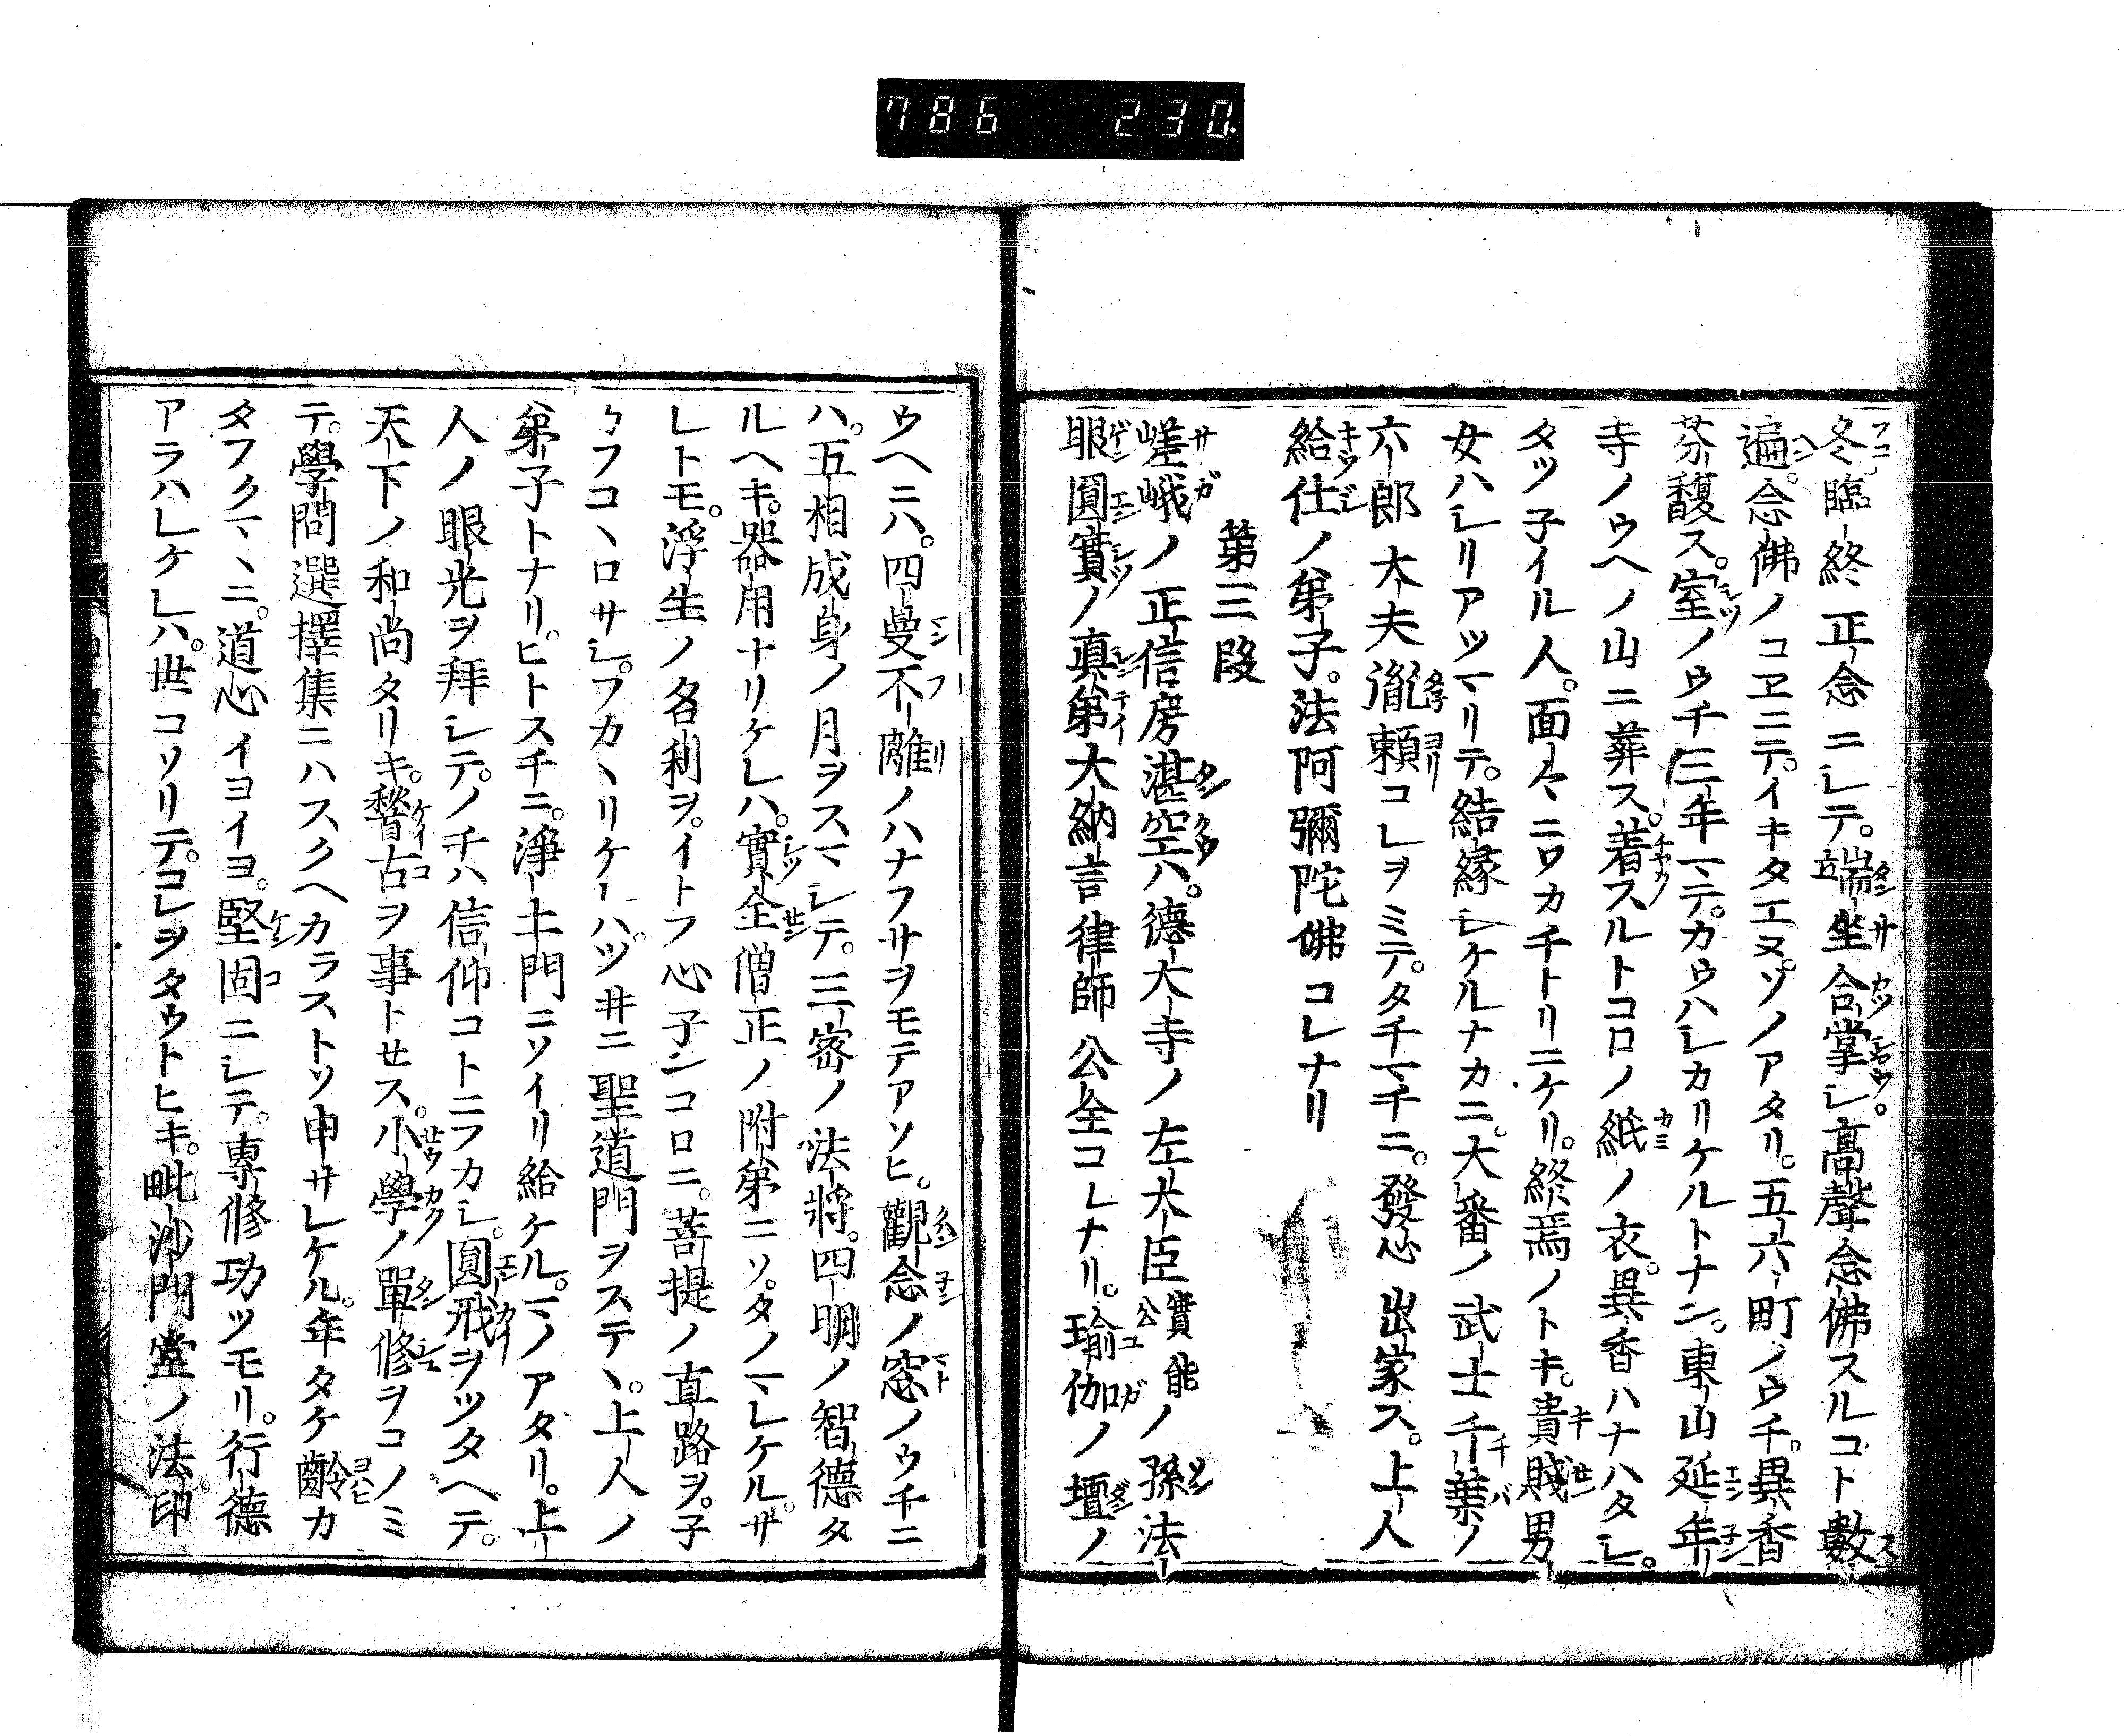 786 230
冬臨終正念ニシテ。端坐合掌シ高聲念佛スルコト數
遍。念佛ノコヱニテ。イキタエヌ。ソノアタリ。五六町ノウチ。異香
芬馥ス。室ノウチ三年マテ。カウハシカリケルトナン。東山延年
寺ノウヘノ山ニ葬ス。着スルトコロノ紙ノ衣。異香ハナハタシ。
タツ子イル人。面々ニワカチトリニケリ。終焉ノトキ。貴賤男
女ハシリアツマリテ。結縁シケルナカニ。大番ノ武士千葉ノ
六郎大夫胤頼コレヲミテ。タチマチニ。發心出家ス。上人
給仕ノ弟子。法阿彌陀佛コレナリ
第三段
嵯峨ノ正信房湛空ハ。德大寺ノ左大臣實能公ノ孫法
眼圓實ノ真弟大納言律師公全コレナリ。瑜伽ノ壇ノ
ウヘニハ。四曼不離ノハナフサヲモテアソヒ。觀念ノ窓ノウチニ
ハ。五相成身ノ月ヲスマシテ。三密ノ法將。四明ノ智德タ
ルヘキ。器用ナリケレハ。實全僧正ノ附弟ニソ。タノマレケル。サ
レトモ。浮生ノ名利ヲ。イトフ心子ンコロニ。菩提ノ直路ヲ。子
カフコヽロサシ。フカヽリケーハ。ツ井ニ聖道門ヲステヽ。上人ノ
弟子トナリ。ヒトスチニ。淨土門ニソイリ給ケル。マノアタリ。上
人ノ眼光ヲ拜シテ。ノチハ信仰コトニフカシ。圓戒ヲツタヘテ。
天下ノ和尚タリキ。稽古ヲ事トセス。小學ノ單修ヲコノミ
テ。學問選擇集ニハスクヘカラストソ申サレケル。年タケ齡カ
タフクマヽニ。道心イヨイヨ。堅固ニシテ。專修功ツモリ。行德
アラハレケレハ。世コソリテ。コレヲタウトヒキ。毗沙門堂ノ法印